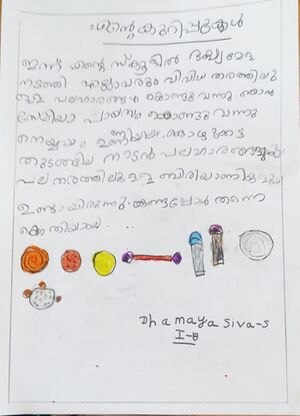 എന്റെ കുറിപ്പുകൾ
ഇന്ന് എന്റെ സ്കൂളിൽ ഭക്ഷ്യമേള
നടത്തി എല്ലാവരും വിവിധ തരത്തിലു
ള്ള പലഹാരങ്ങൾ കൊണ്ടുവന്നു ഞാൻ
സേമിയാ പായസം കൊണ്ടുവന്നു
നെയ്യപ്പം ഉണ്ണിയപ്പം കൊഴുക്കട്ട
തുടങ്ങിയ നാടൻ പലഹാരങ്ങളും
പല തരത്തിലുള്ള ബിരിയാണികളും
ഉണ്ടായിരുന്നു. കണ്ടപ്പോൾ തന്നെ
കൊതിയായി.
Dhamaya Siva-S
I-B